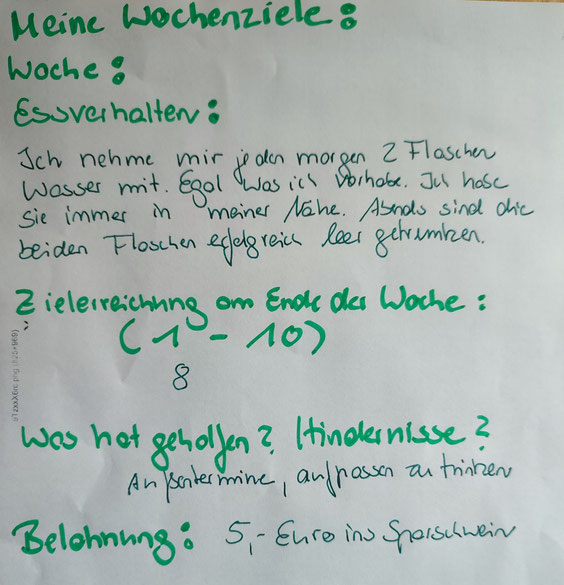 Meine Wochenziele:
Woche:
Essverhalten:
Ich nehme mir jeden morgen 2 Flaschen
Wasser mit. Egal was ich vorhabe. Ich habe
sie immer in meiner Nähe. Abends sind die
beiden Flaschen erfolgreich leer getrunken.
Zielerreichung am Ende der Woche:
(1 - 10)
8
Was hat geholfen? Hindernisse?
Außentermine, aufpassen zu trinken
Belohnung: 5,- Euro ins Sparschwein